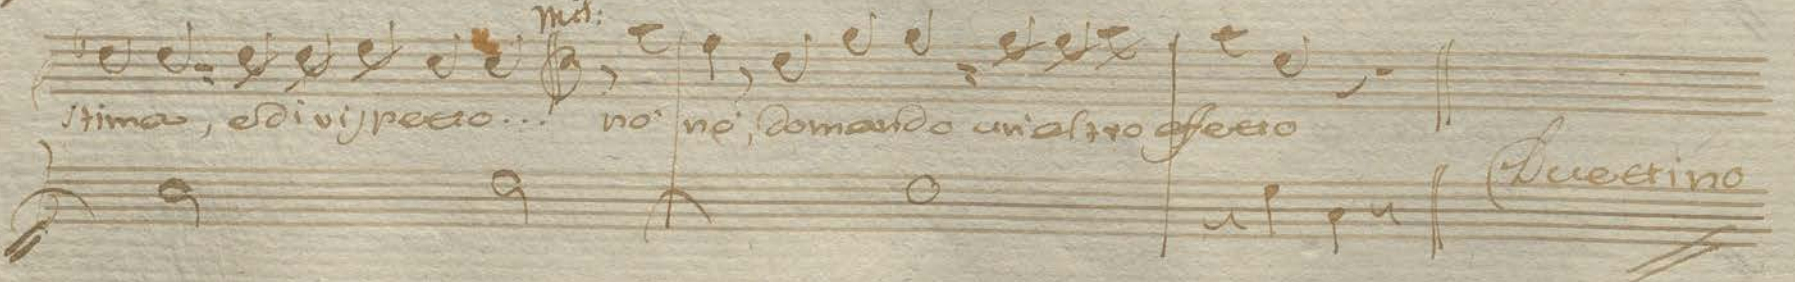 Mel:
stima, e di rispetto... no no, domando un'altro afetto
Duettino